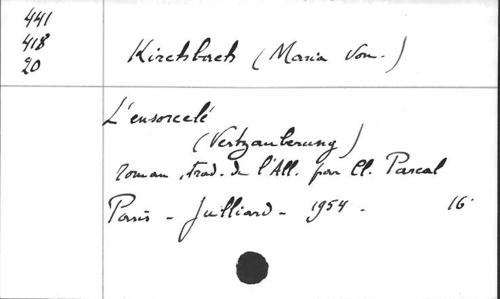 441
418
20
Kirchbach (Maria von.)
L'ensorcelé
(Vertzauberung)
roman, trad. de l'All. par Cl. Pascal
Paris - Julliard - 1954. 16°